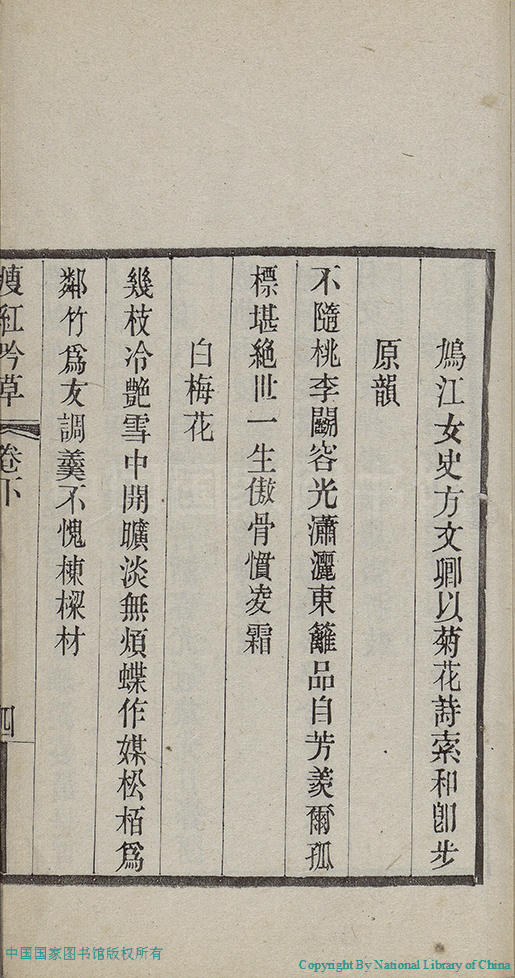 鳩江女史方文卿以菊花詩索和卽步
原韻
不隨桃李鬭容光瀟灑東籬品自芳羨爾孤
標堪絕世一生傲骨慣凌霜
白梅花
幾枝冷艷雪中開曠淡無煩蝶作媒松栢爲
鄰竹爲友調羹不愧棟樑材
瘦紅吟草 卷下 四
中国国家图书馆版权所有
Copyright By National Library of China